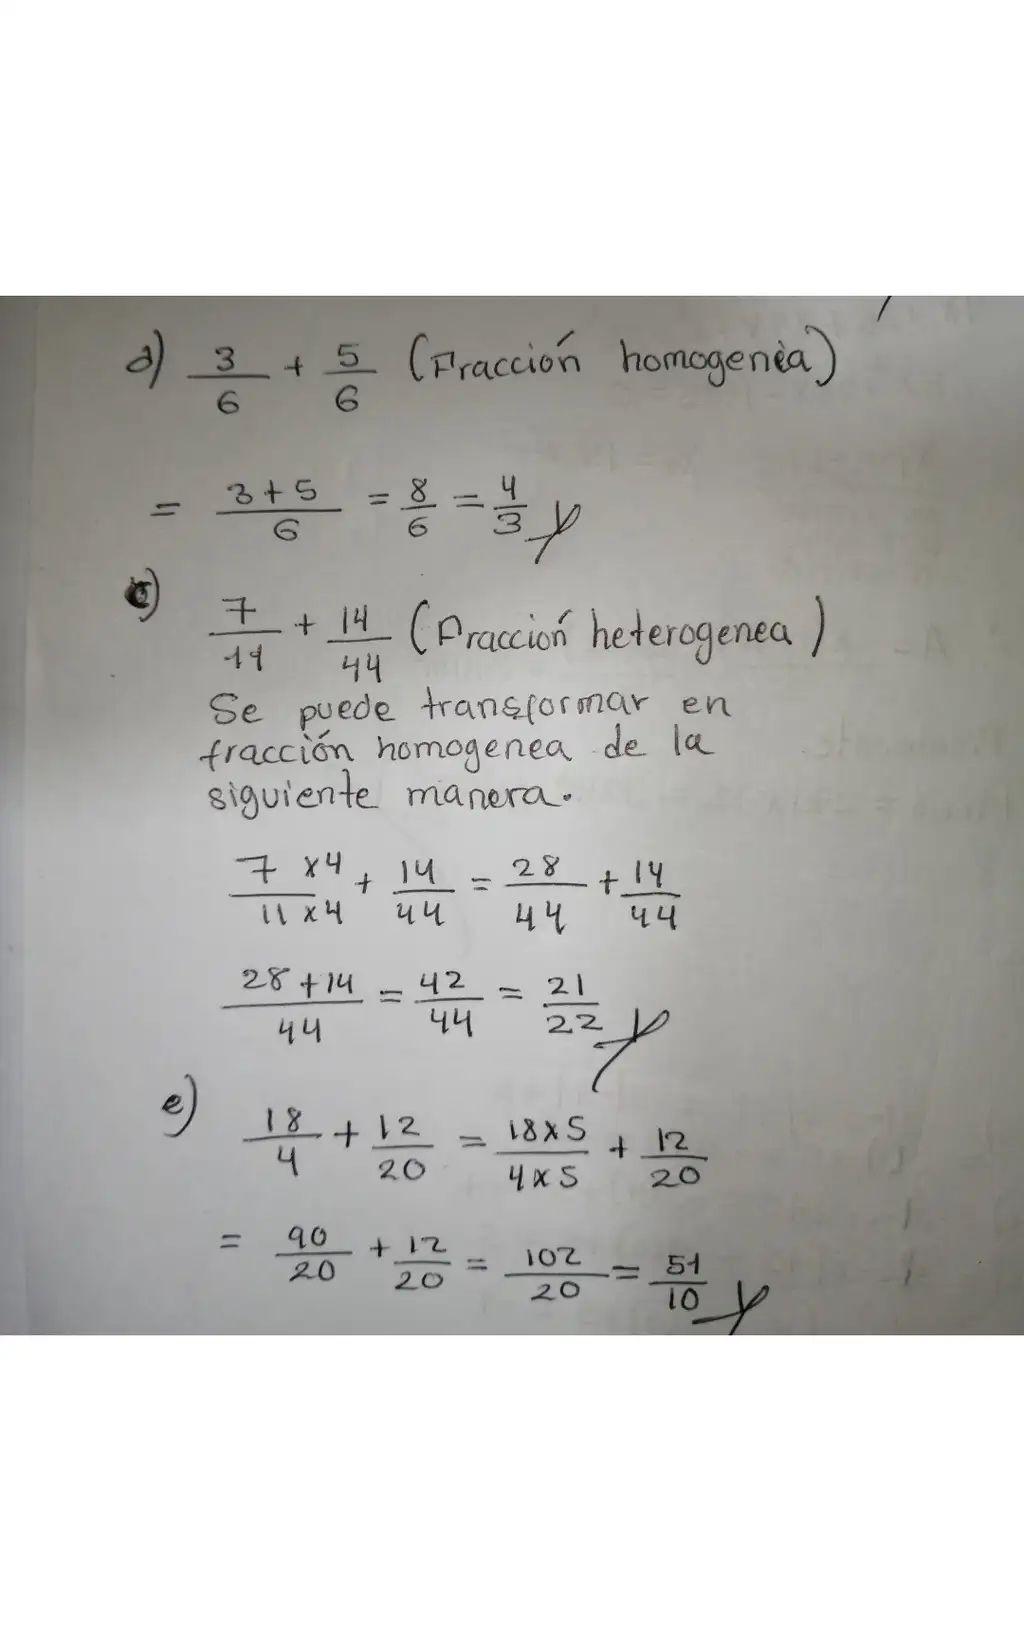 d) 3/6 + 5/6 (Fracción homogenéa)
= 3+5/6 = 8/6 = 4/3
7/11 + 14/44 (Fracción heterogenea)
Se puede transformar en
fracción homogenea de la
siguiente manera.
7 x4/11 x4 + 14/44 = 28/44 + 14/44
28+14/44 = 42/44 = 21/22
e) 18/4 + 12/20 = 18x5/4x5 + 12/20
= 90/20 + 12/20 = 102/20 = 51/10